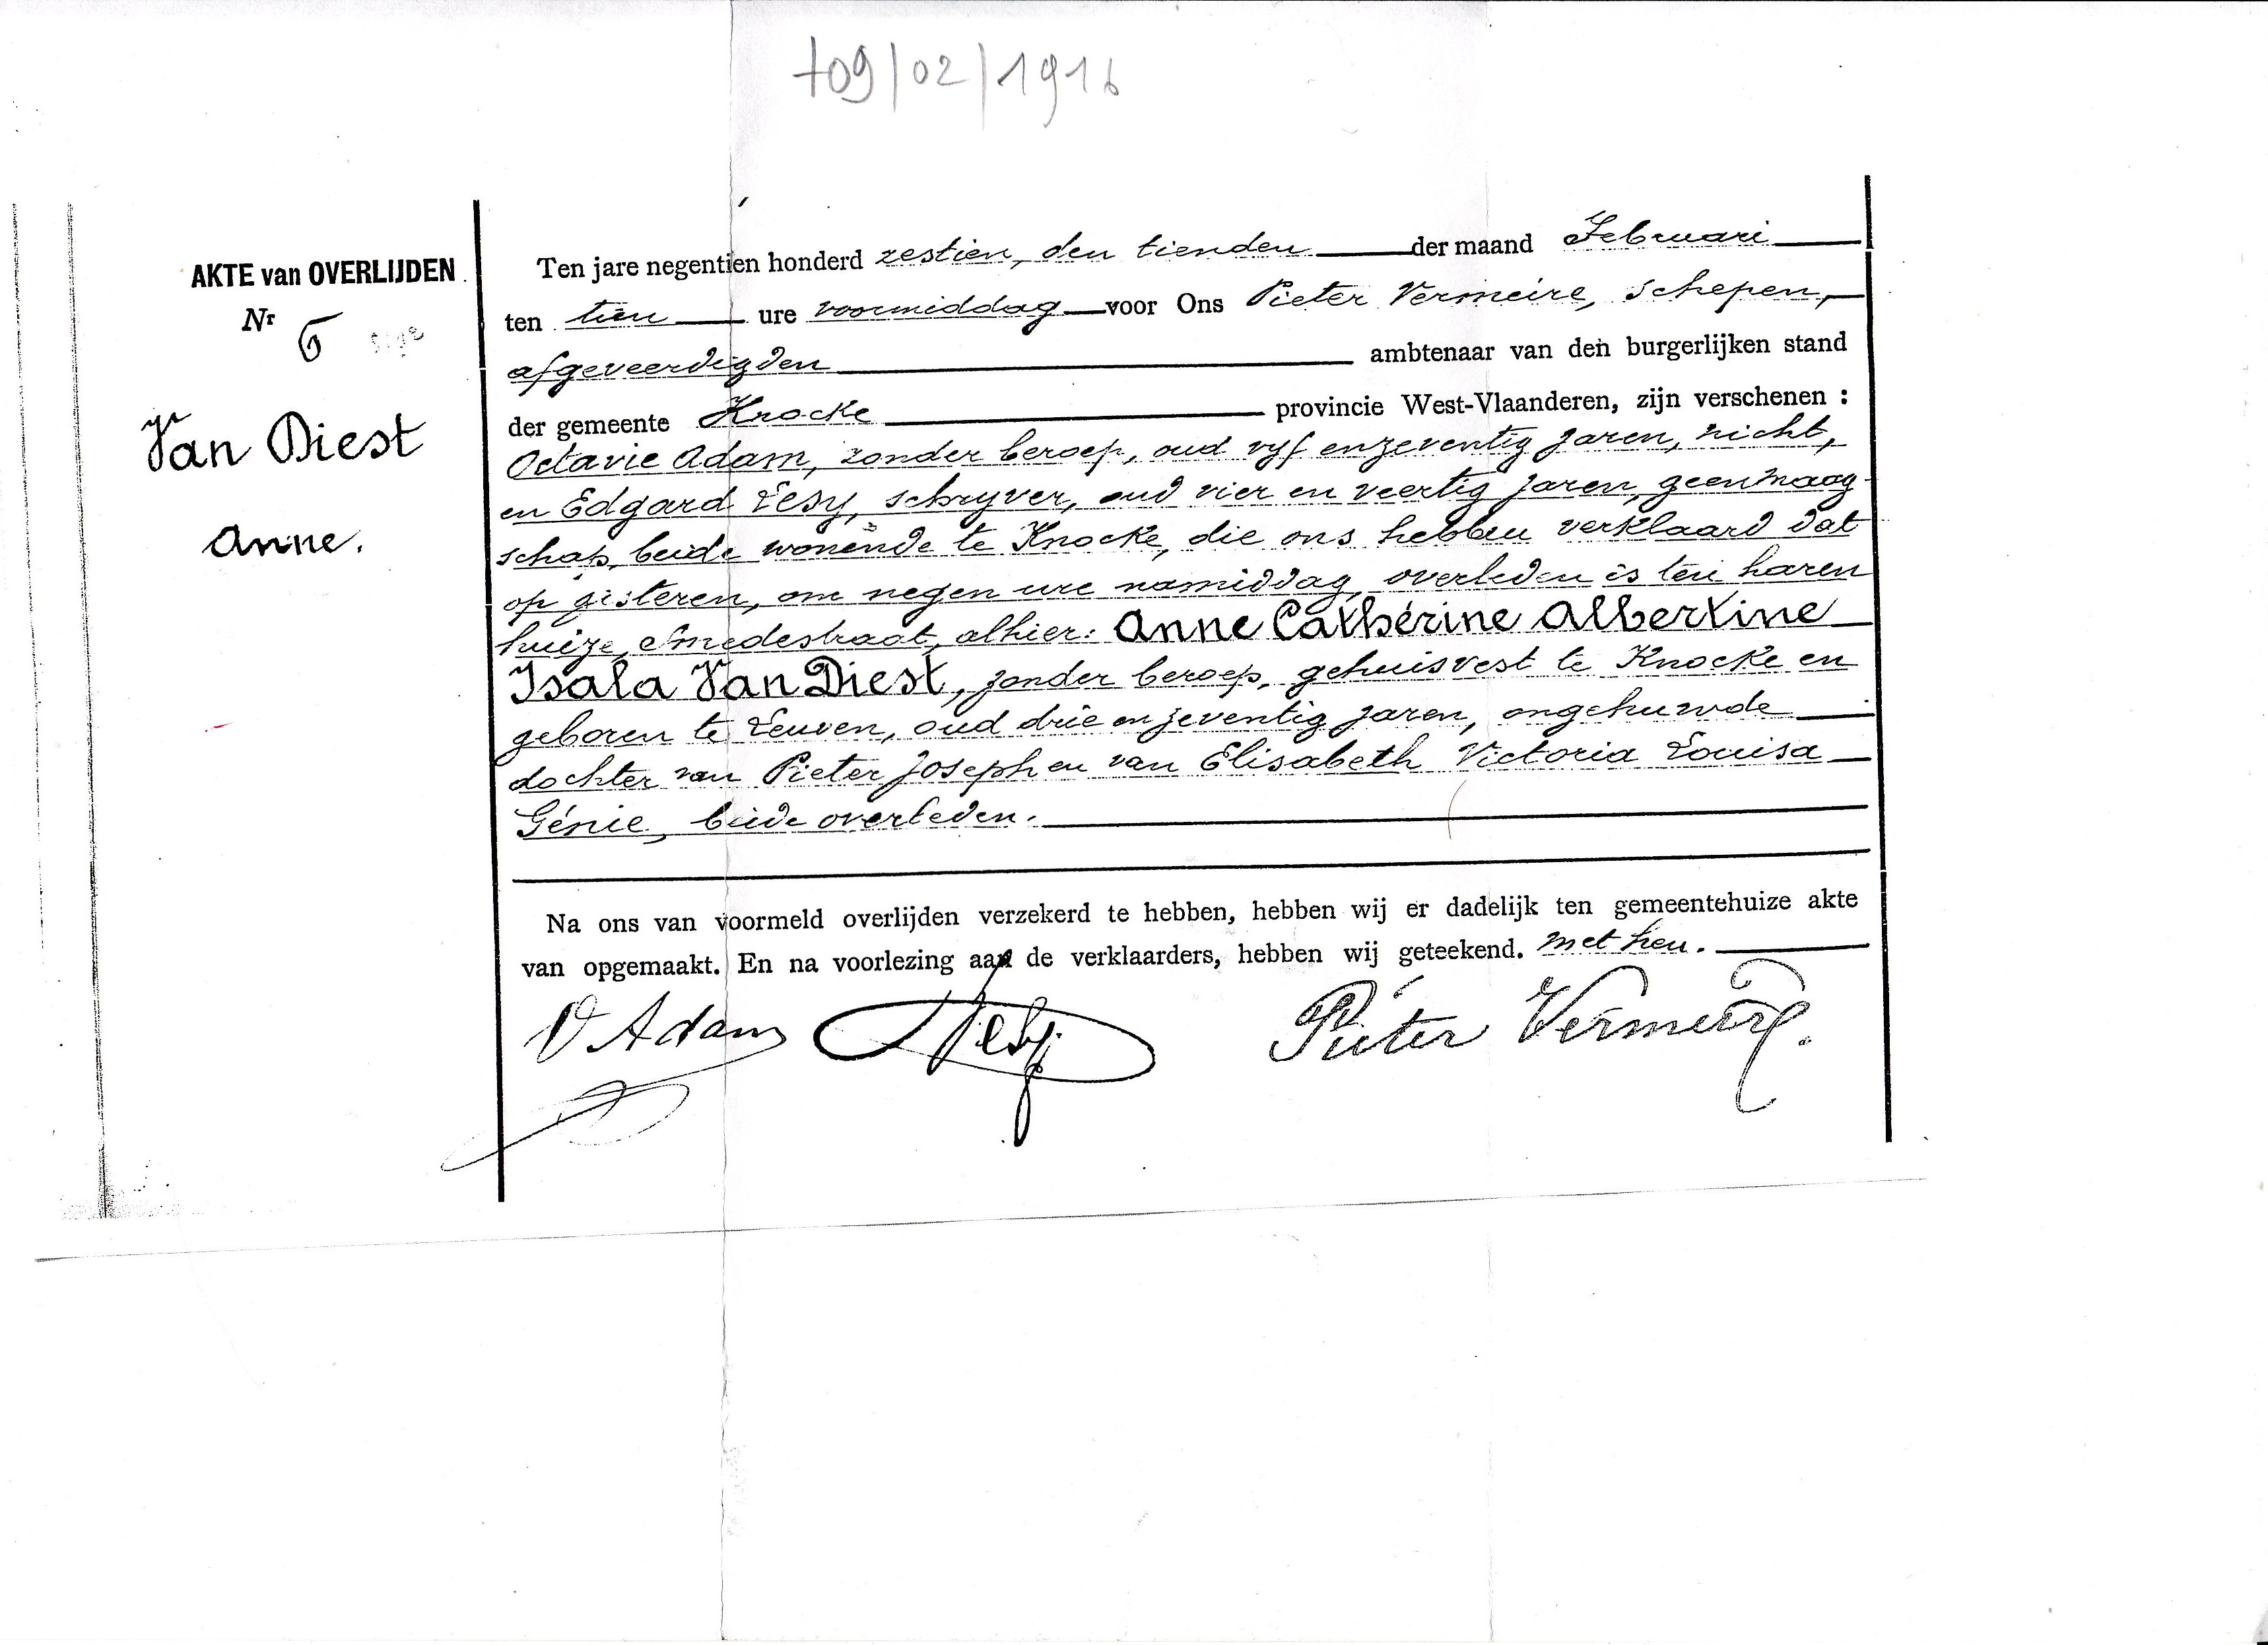 +09/02/1916
AKTE van OVERLIJDEN
Nr 6
Van Diest
Anne.
Ten jare negentien honderd zestien, den tienden der maand Februari
ten tien ure voormiddag voor Ons Pieter Vermeire, schepen,
afgeveerdigden ambtenaar van den burgerlijken stand
der gemeente Knocke provincie West-Vlaanderen, zijn verschenen :
Octavie Adam, zonder beroep, oud vyf en zeventig jaren, nicht,
en Edgard Desy, schryver, oud vier en veertig jaren, geen maag-
schap, beide wonende te Knocke, die ons hebben verklaard dat
op gisteren, om negen ure namiddag, overleden is ten haren
huize, Smedestraat, alhier: Anne Cathérine Albertine
Isala Van Diest, zonder beroep, gehuisvest te Knocke en
geboren te Leuven, oud drie en zeventig jaren, ongehuwde
dochter van Pieter Joseph en van Elisabeth Victoria Louisa
Génie, beide overleden.
Na ons van voormeld overlijden verzekerd te hebben, hebben wij er dadelijk ten gemeentehuize akte
van opgemaakt. En na voorlezing aan de verklaarders, hebben wij geteekend. met hen.
O Adam Desy Pieter Vermeire.